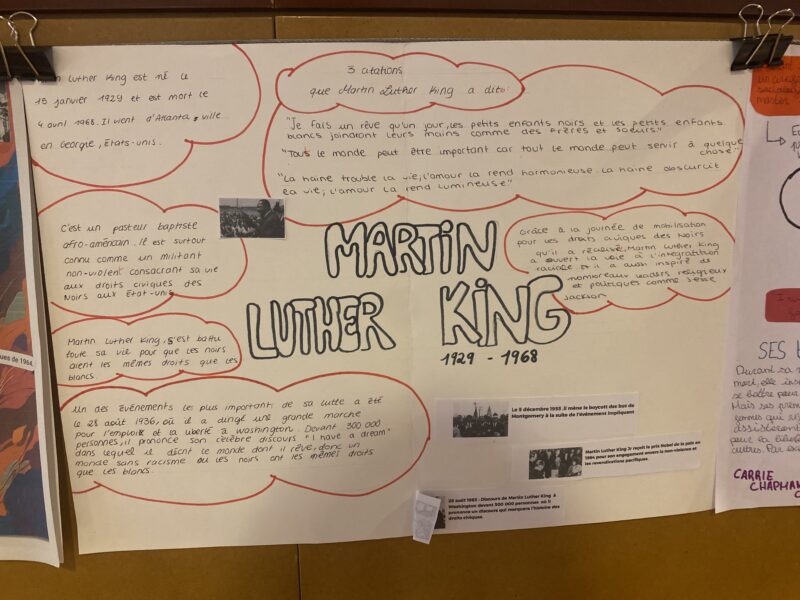 Luther King est né le
15 janvier 1929 et est mort le
4 avril 1968. Il vient d'Atlanta, ville
en Georgie, États-unis.
3 citations
que Martin Luther King a dit:
"Je fais un rêve qu'un jour, les petits enfants noirs et les petits enfants
blancs joindront leurs mains comme des frères et soeurs."
"Tous le monde peut être important car tout le monde peut servir à quelque
chose."
"La haine trouble la vie; l'amour la rend harmonieuse. La haine obscurcit
la vie; l'amour la rend lumineuse."
C'est un pasteur baptiste
afro-américain. Il est surtout
connu comme un militant
non-violent consacrant sa vie
aux droits civiques des
Noirs aux État-unis
MARTIN
LUTHER KING
1929 - 1968
Grâce à la journée de mobilisation
pour les droits civiques des Noirs
qu'il a réalisé, Martin Luther King
a ouvert la voie à l'intégration
raciale et il a aussi inspiré de
nombreaux leaders religieux
et politiques comme Jesse
Jackson
Martin Luther King, s'est battu
toute sa vie pour que les noirs
aient les mêmes droits que les
blancs.
Un des évenements les plus important de sa lutte a été
le 28 août 1936, où il a dirigé une grande marche
pour l'emploie et la liberté à Washington. Devant 300 000
personnes, il prononce son célèbre discours "I have a dream"
dans lequel il décrit le monde dont il rêve, donc un
monde sans racisme où les noirs ont les mêmes droits
que les blancs.
Le 5 décembre 1955 ,il mène le boycott des bus de
Montgomery à la suite de l'évènement impliquant
Martin Luther King Jr reçoit le prix Nobel de la paix en
1964 pour son engagement envers la non-violence et
les revendications pacifiques.
28 août 1963 - Discours de Martin Luther King à
Washington devant 300 000 personnes où il
prononce un discours qui marquera l'histoire des
droits civiques
ques de 1964
SES
Durant sa
mort, elle
se battre pour
Mais ses
femmes qui
assisteront
pour la
autres. Par
CARRIE
CHAPMAN